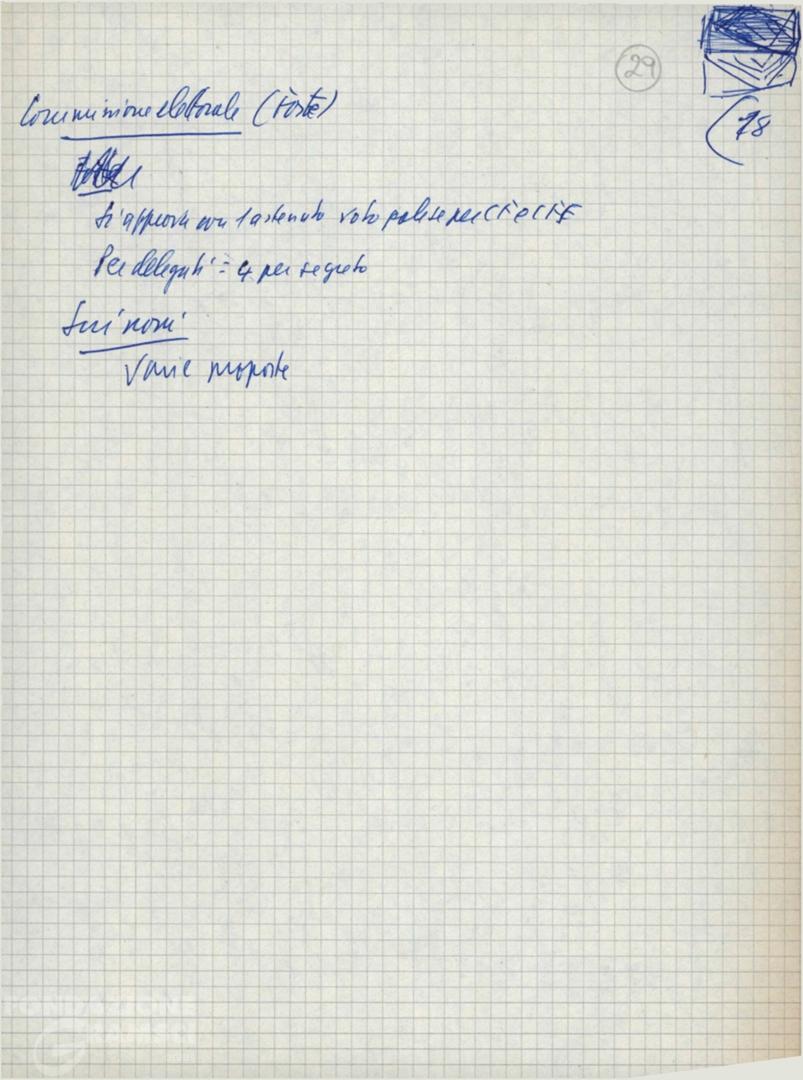 29
18
Commissione elettorale (Forte)
Si approva con 1 astenuto voto palese per CF e CFC
Per delegati = 4 per segreto
Sui nomi
Varie proposte
FONDAZIONE
GRAMSCI